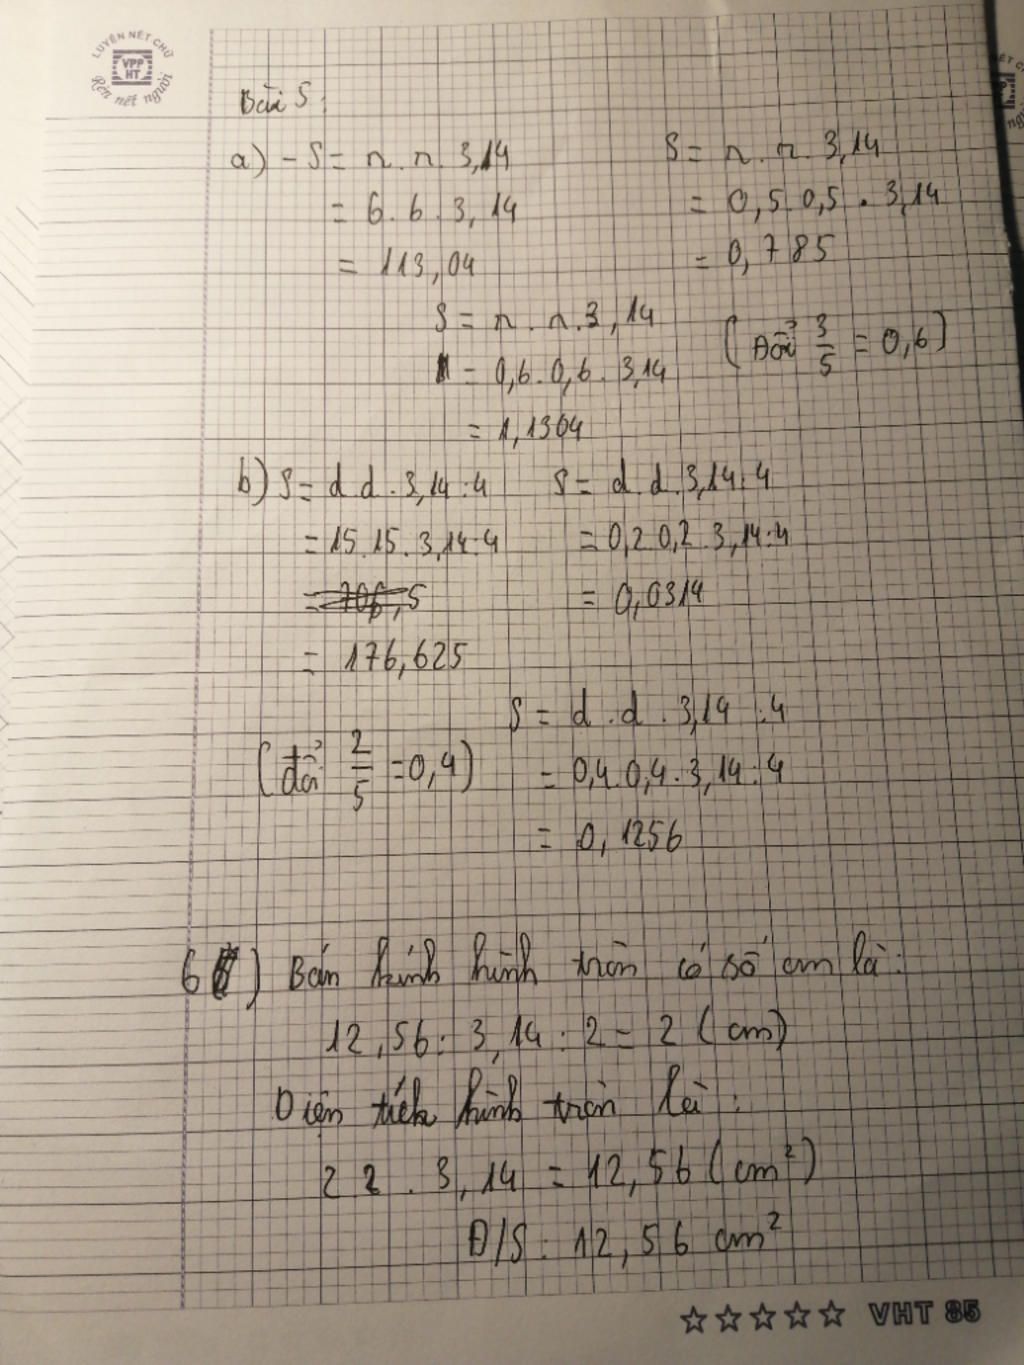 LUYỆN NÉT CHỮ
VPP
HT
Rèn nết người
Bài 5:
a) - S = r. r. 3,14
= 6. 6. 3,14
= 113,04
S = r. r. 3,14
= 0,5 0,5 . 3,14
= 0,785
S = r. r. 3,14
= 0,6. 0,6. 3,14
= 1,1304
(Đổi 3/5 = 0,6)
b) S = d d . 3,14 : 4
= 15. 15. 3,14 : 4
= 706,5
= 176,625
S = d. d. 3,14 : 4
= 0,2 0,2 3,14 : 4
= 0,0314
(đổi 2/5 = 0,4)
S = d . d . 3,14 : 4
= 0,4. 0,4. 3,14 : 4
= 0,1256
6) Bán kính hình tròn có số cm là:
12,56 : 3,14 : 2 = 2 (cm)
Diện tích hình tròn là:
2 2 . 3,14 = 12,56 (cm²)
Đ/S : 12,56 cm²
☆☆☆☆☆ VHT 85